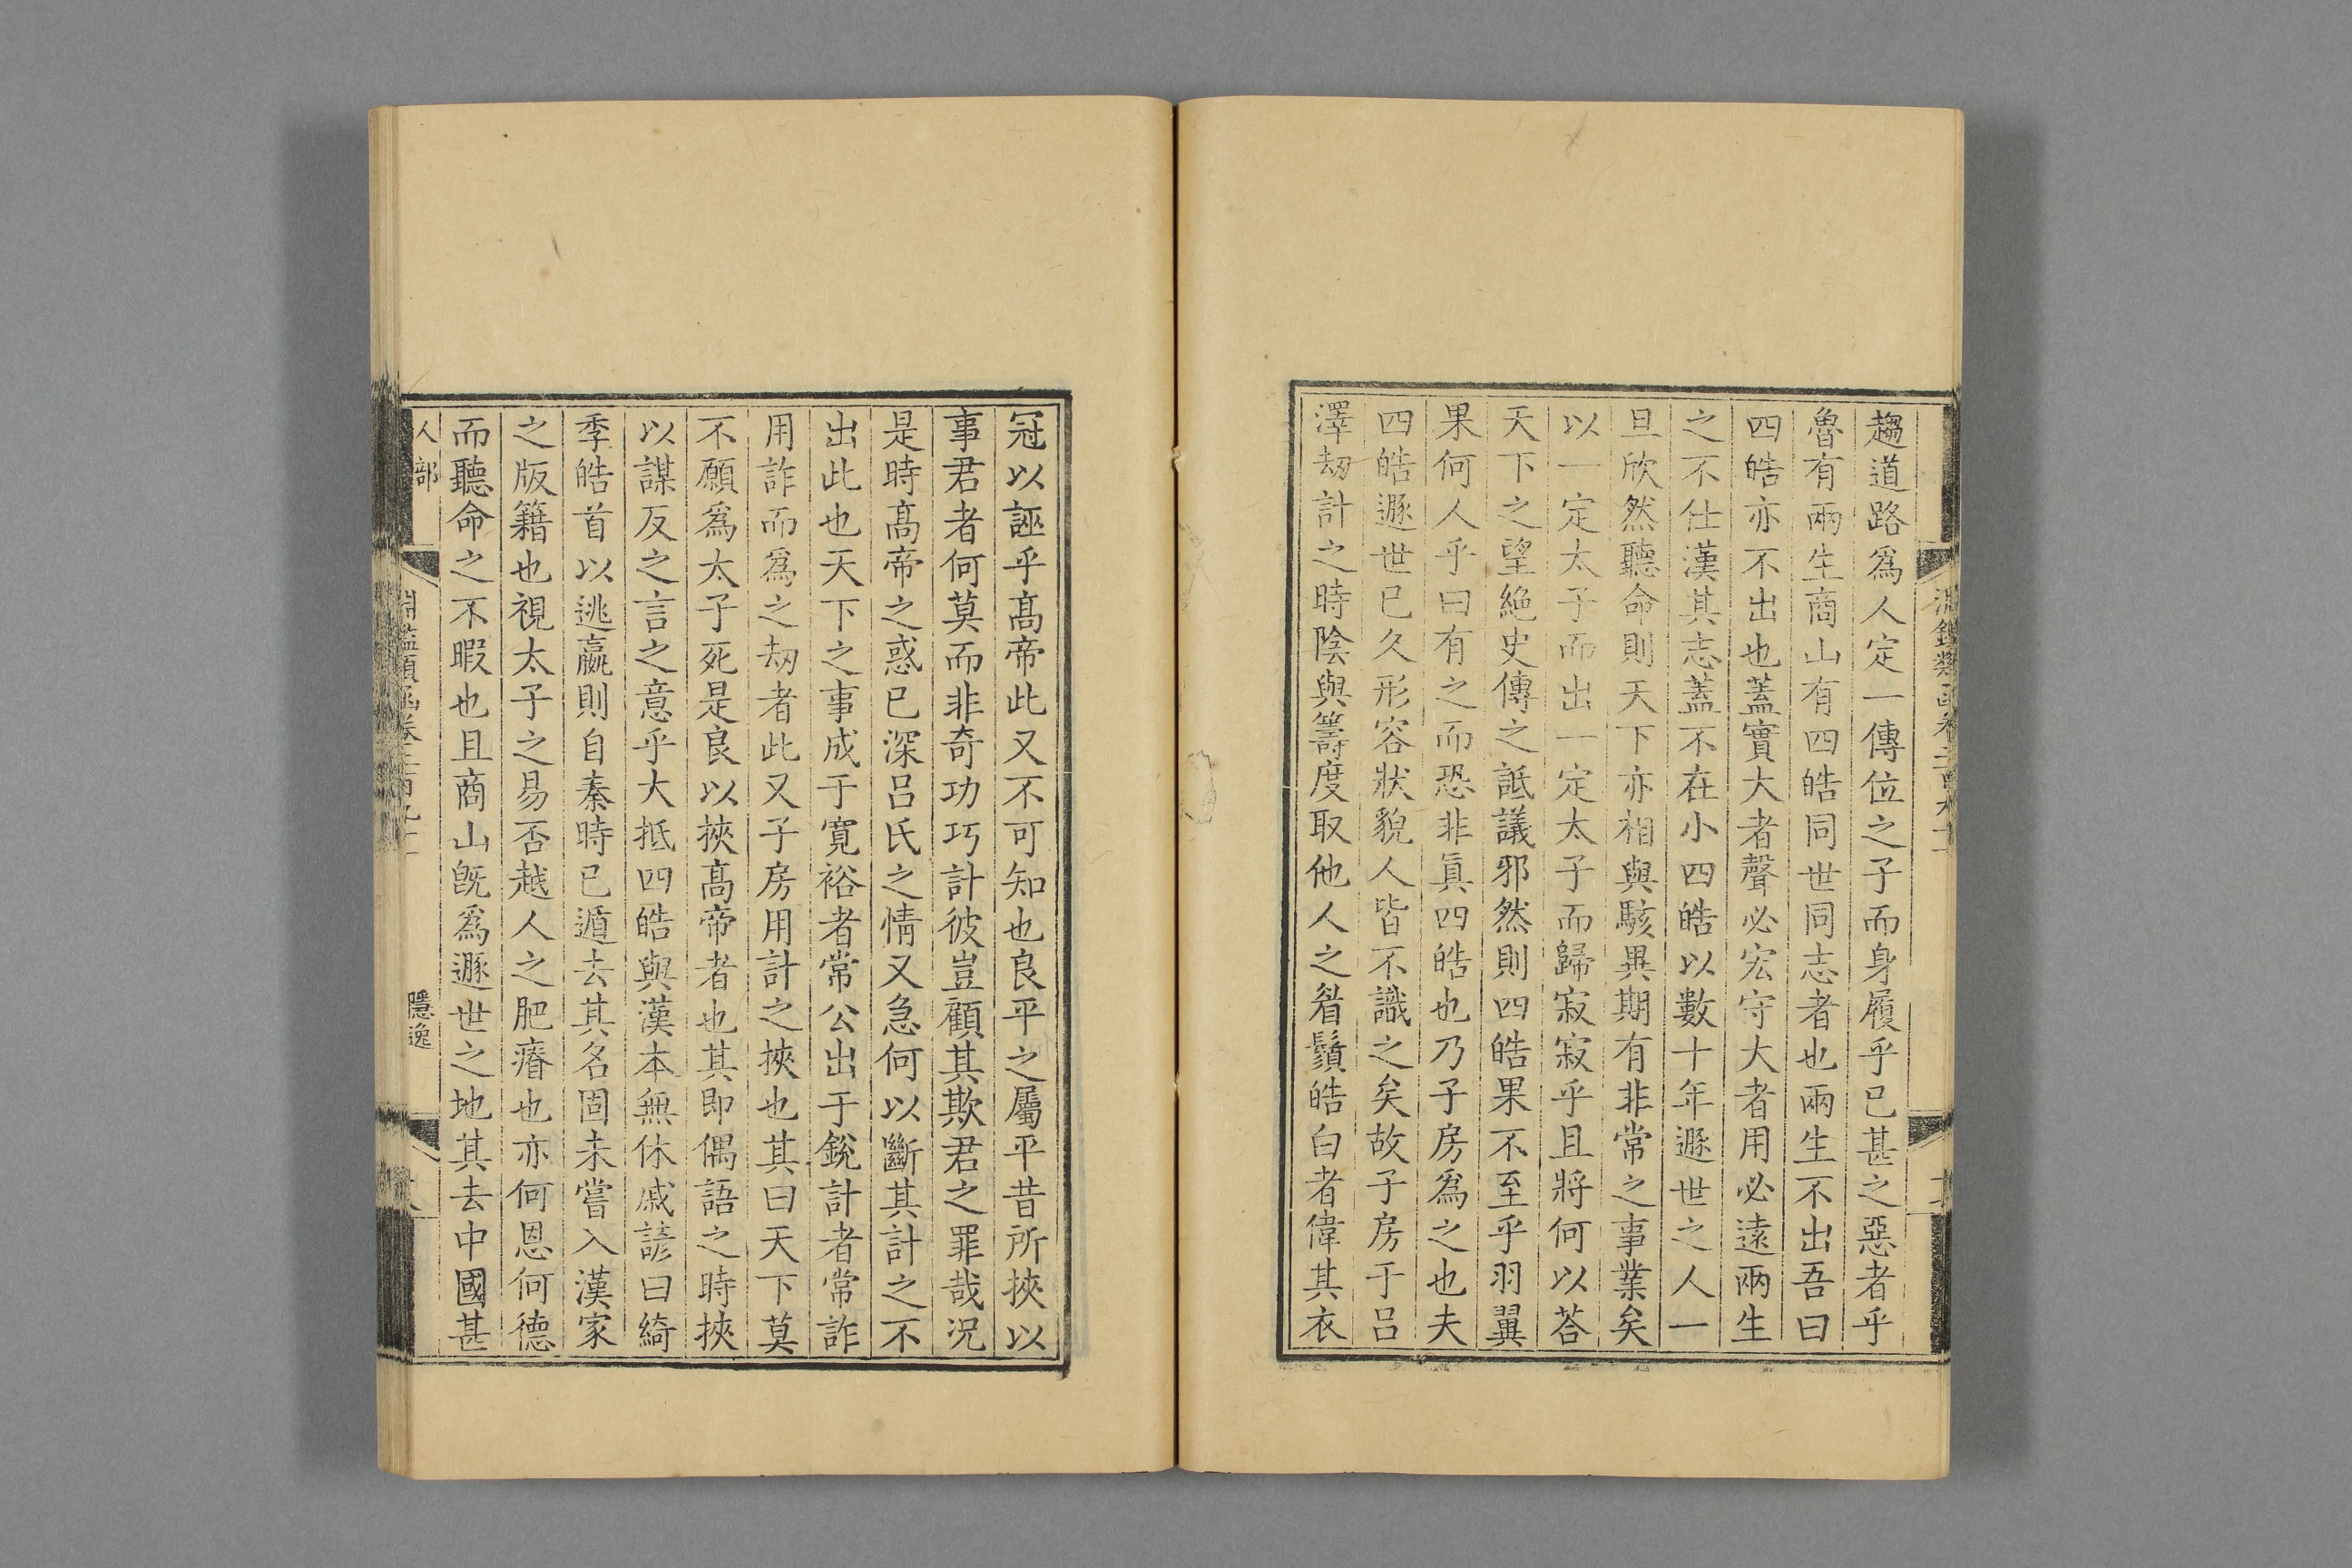 趨道路爲人定一傳位之子而身履乎已甚之惡者乎
魯有兩生商山有四皓同世同志者也兩生不出吾曰
四皓亦不出也蓋實大者聲必宏守大者用必遠兩生
之不仕漢其志蓋不在小四皓以數十年遯世之人一
旦欣然聽命則天下亦相與駭異期有非常之事業矣
以一定太子而出一定太子而歸寂寂乎且將何以荅
天下之望絶史傳之詆議邪然則四皓果不至乎羽翼
果何人乎曰有之而恐非眞四皓也乃子房爲之也夫
四皓遯世已久形容狀貌人皆不識之矣故子房于吕
澤刼計之時陰與籌度取他人之眉鬚皓白者偉其衣
冠以誣乎髙帝此又不可知也良平之屬平昔所挾以
事君者何莫而非奇功巧計彼豈顧其欺君之罪哉況
是時髙帝之惑已深吕氏之情又急何以斷其計之不
出此也天下之事成于寛裕者常公出于銳計者常詐
用詐而爲之刼者此又子房用計之挾也其曰天下莫
不願爲太子死是良以挾髙帝者也其即偶語之時挾
以謀反之言之意乎大抵四皓與漢本無休戚諺曰綺
季皓首以逃嬴則自秦時已遁去其名固未嘗入漢家
之版籍也視太子之易否越人之肥瘠也亦何恩何德
而聽命之不暇也且商山旣爲遯世之地其去中國甚
人部
隱逸